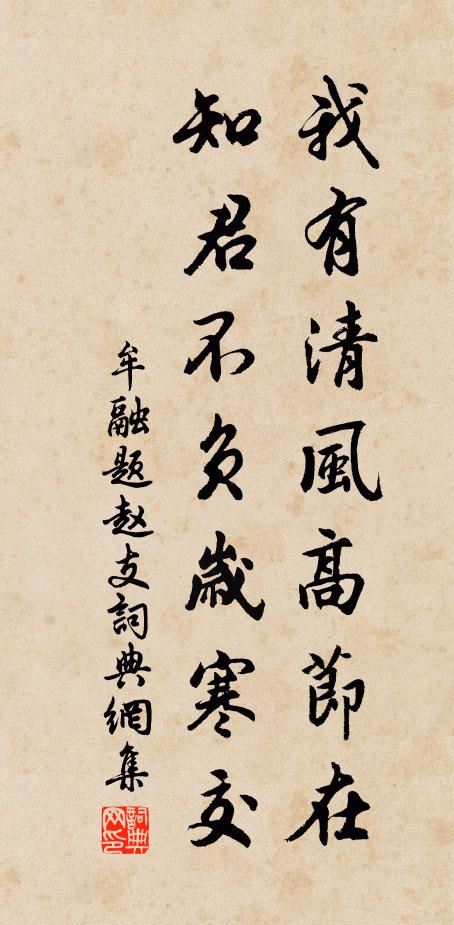 我有清風高節在
知君不負歲寒交
牟融題赵支詞典網集
詞典网印